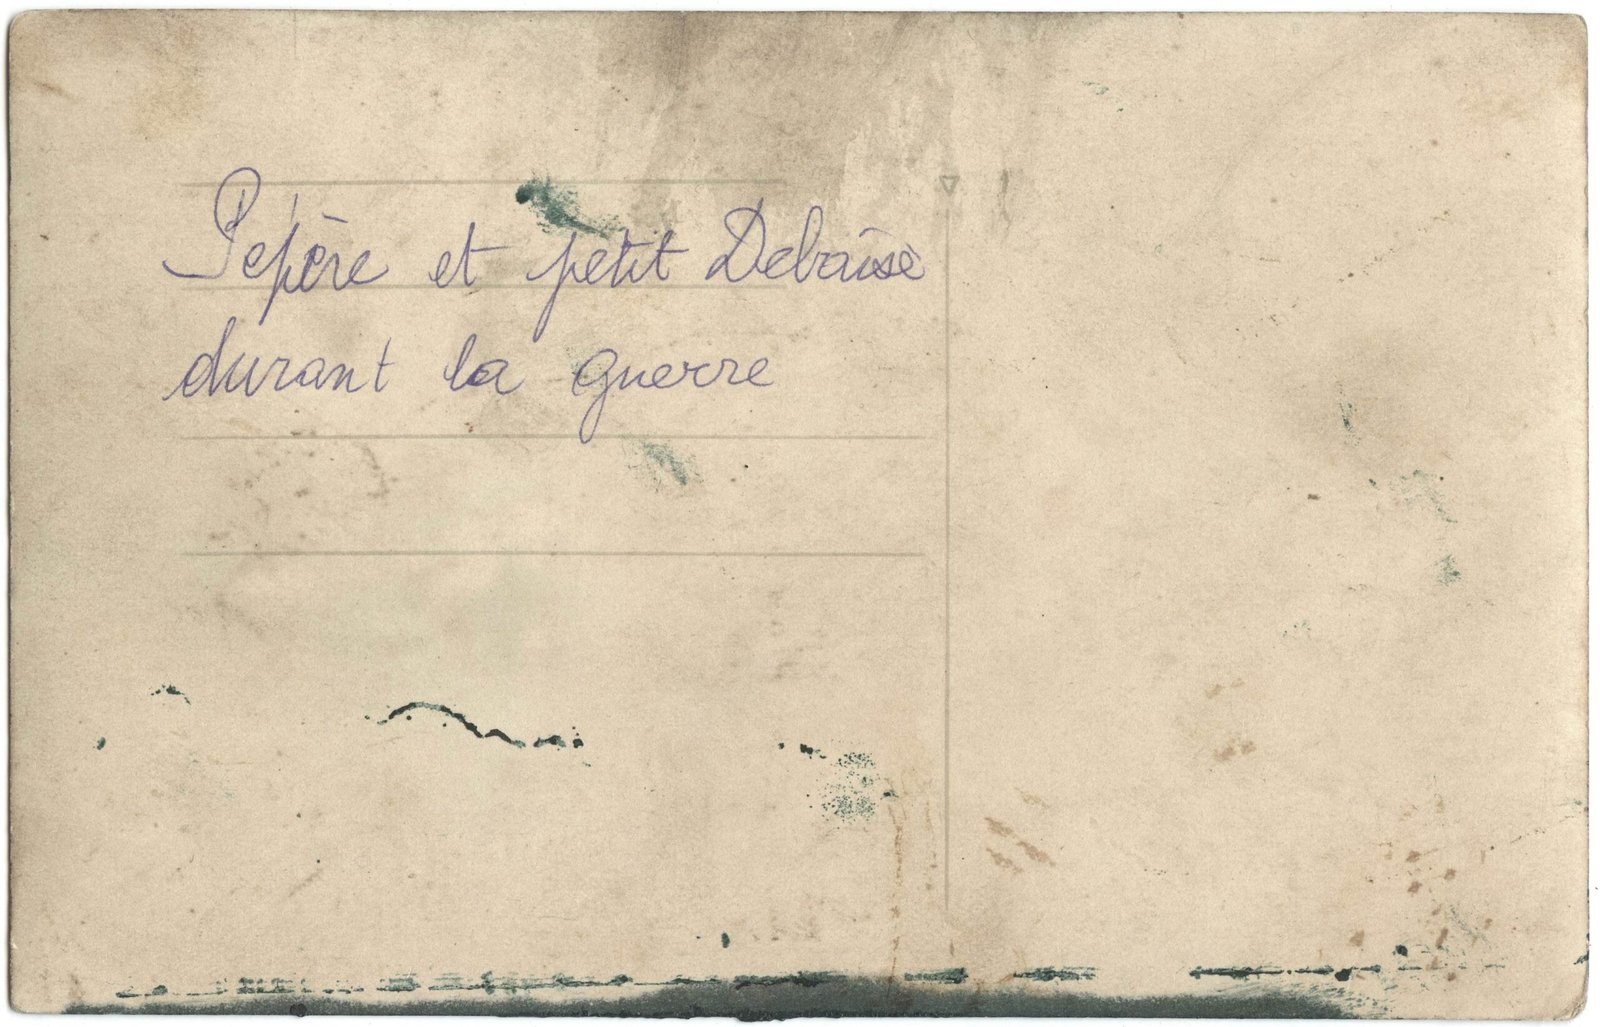 Pepère et petit Debaise
durant la guerre